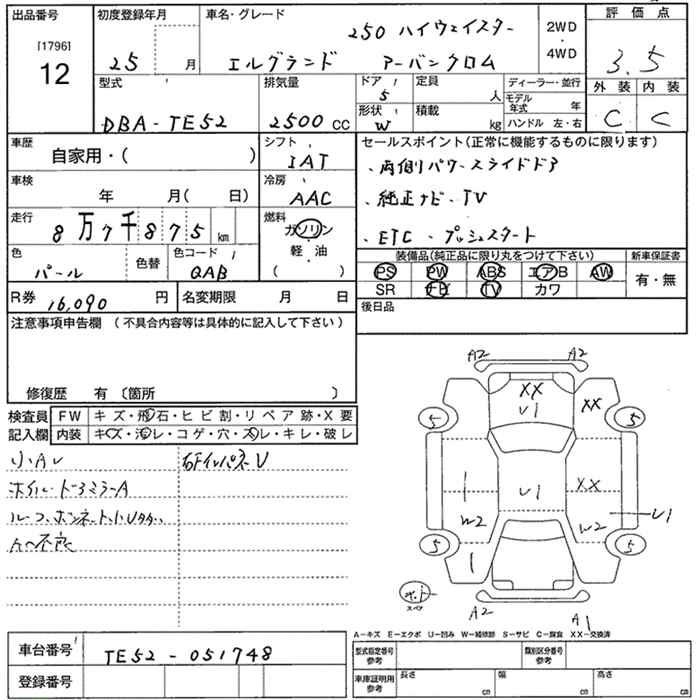 出品番号 初度登録年月 車名・グレード 評価点
[1796]
12
25 月
250 ハイウェイスター
エルグランド アーバンクロム
2WD
4WD
3.5
外装 内装
C C
型式 排気量 ドア 定員 ディーラー・並行
5 人
モデル年式 年
DBA-TE52 2500 CC
形状 積載 ハンドル 左・右
W kg
車歴 シフト セールスポイント(正常に機能するものに限ります)
自家用・( ) IAT
・両側パワースライドドア
車検 冷房
年 月( 日) AAC
・純正ナビ・TV
走行 燃料
8万7千875 km ガソリン
・ETC・プッシュスタート
軽・油
( )
色 色替 色コード
パール QAB
装備品(純正品に限り丸をつけて下さい) 新車保証書
PS PW ABS エアB AW 有・無
SR ナビ TV カワ
R券 16,090 円 名変期限 月 日
後日品
注意事項申告欄 (不具合内容等は具体的に記入して下さい)
修復歴 有 〔箇所 〕
検査員 FW キズ・飛石・ヒビ割・リペア跡・X要
記入欄 内装 キズ・汚レ・コゲ・穴・スレ・キレ・破レ
小AU
ホイル・ドアミラーA
A2 A2
XX
U1
XX
5 5
XX
U1
W2 W2
U1
5 5
スペア
A2 A1
A-キズ E-エクボ U-凹み W-補修跡 S-サビ C-腐食 XX-交換済
車台番号 TE52-051748
登録番号
型式指定番号 参考 類別区分番号 参考
車庫証明用 参考 長さ cm 幅 cm 高さ cm